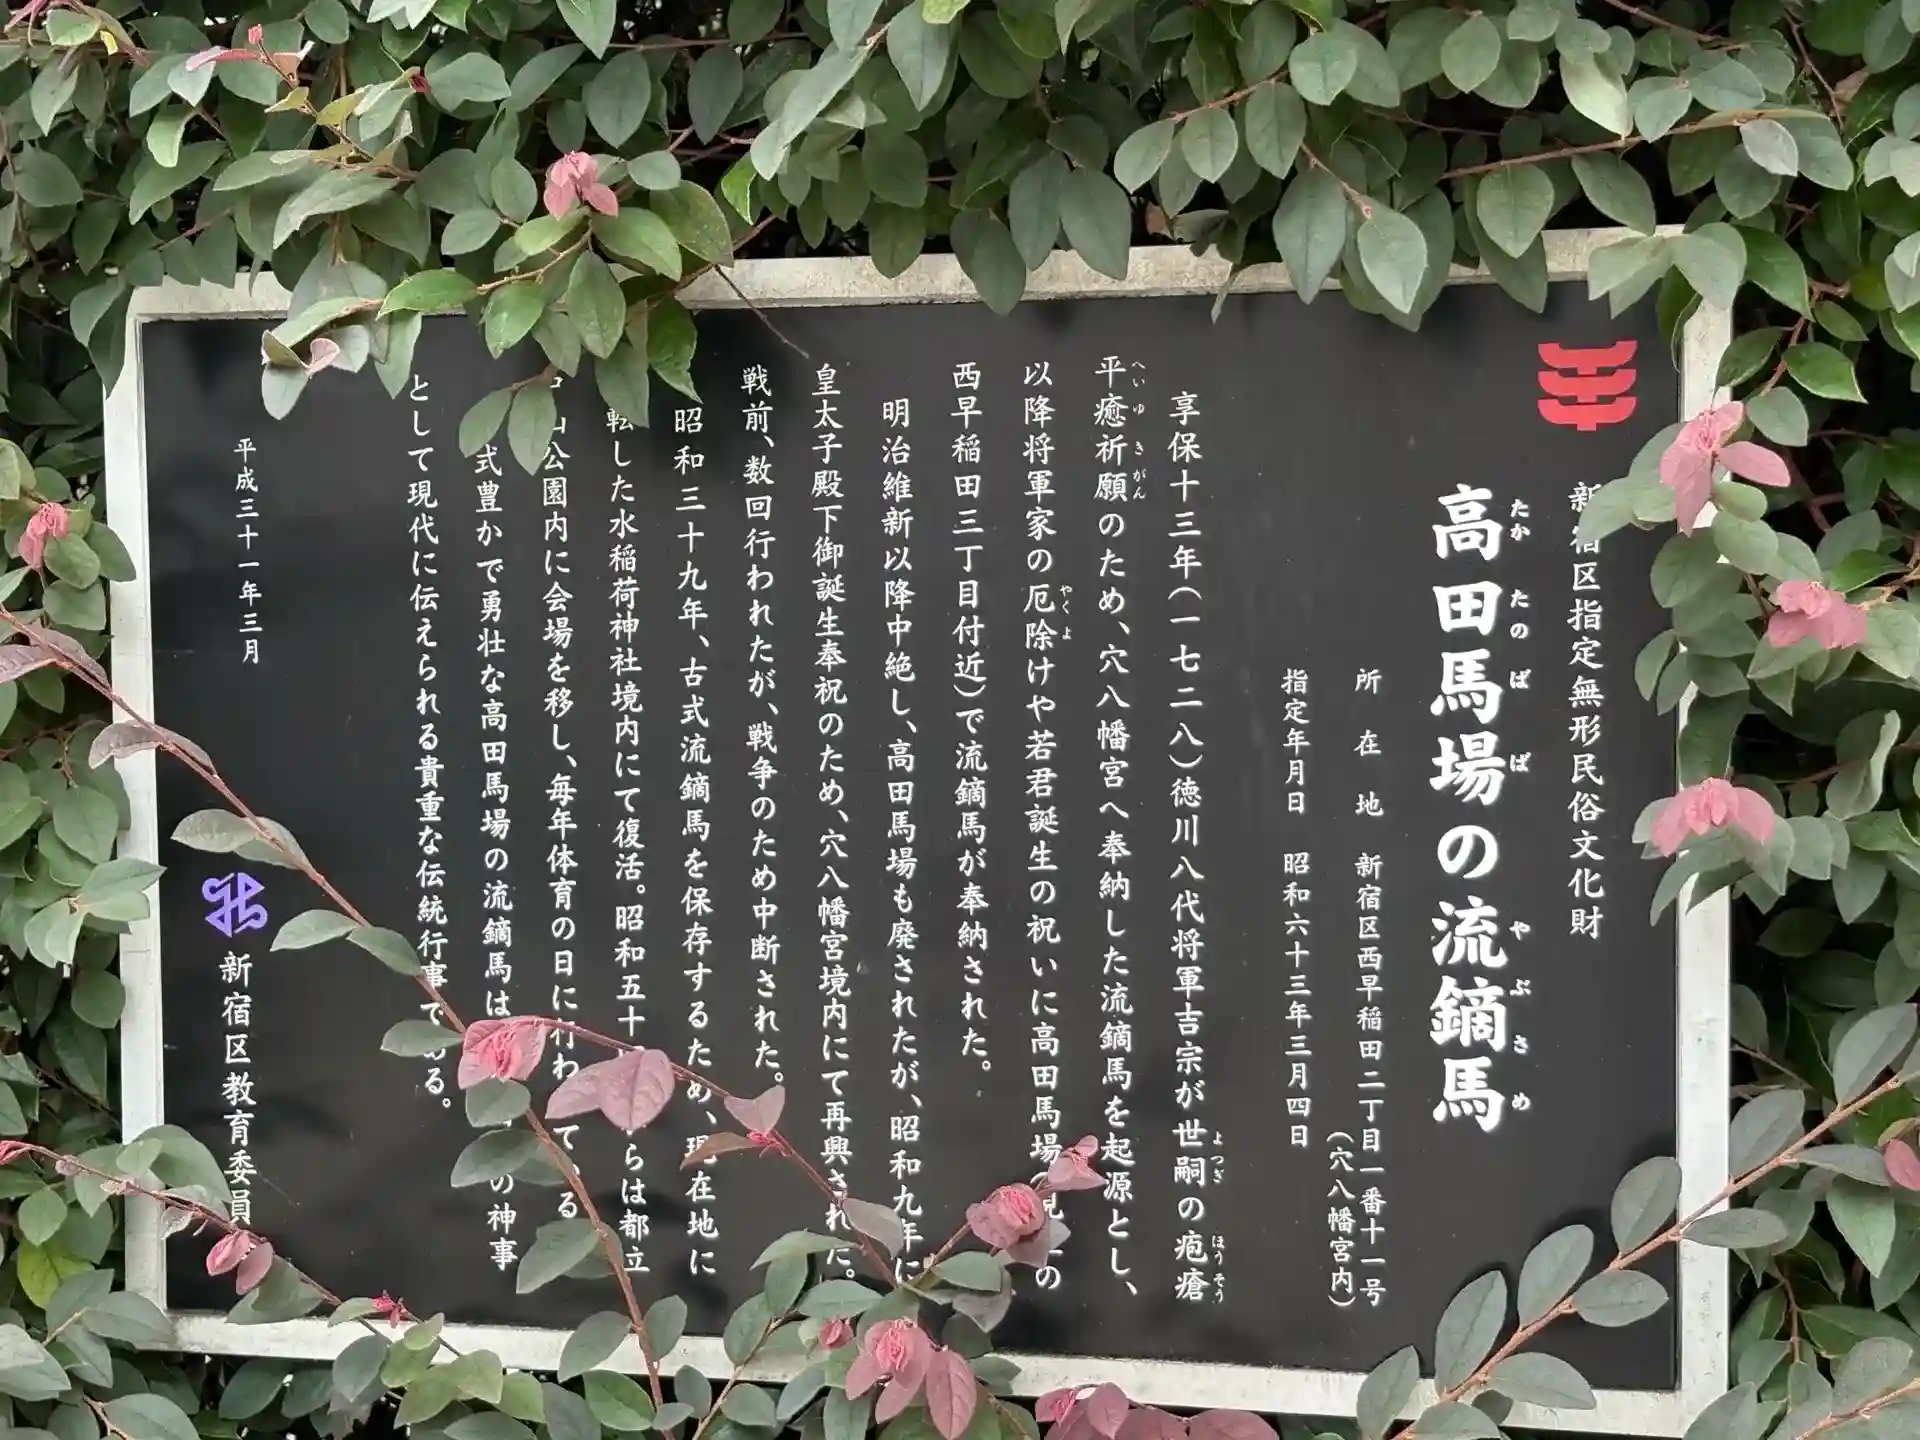 新宿区指定無形民俗文化財
高田馬場の流鏑馬
たか たのばば やぶさめ
所在地 新宿区西早稲田二丁目一番十一号
(穴八幡宮内)
指定年月日 昭和六十三年三月四日
享保十三年(一七二八)徳川八代将軍吉宗が世嗣の疱瘡
よつぎ ほうそう
平癒祈願のため、穴八幡宮へ奉納した流鏑馬を起源とし、
へいゆきがん
以降将軍家の厄除けや若君誕生の祝いに高田馬場(現の
やくよ
西早稲田三丁目付近)で流鏑馬が奉納された。
明治維新以降中絶し、高田馬場も廃されたが、昭和九年に
皇太子殿下御誕生奉祝のため、穴八幡宮境内にて再興された。
戦前、数回行われたが、戦争のため中断された。
昭和三十九年、古式流鏑馬を保存するため、現在地に
転した水稲荷神社境内にて復活。昭和五十らは都立
山公園内に会場を移し、毎年体育の日に行われている
式豊かで勇壮な高田馬場の流鏑馬はの神事
として現代に伝えられる貴重な伝統行事である。
平成三十一年三月
新宿区教育委員